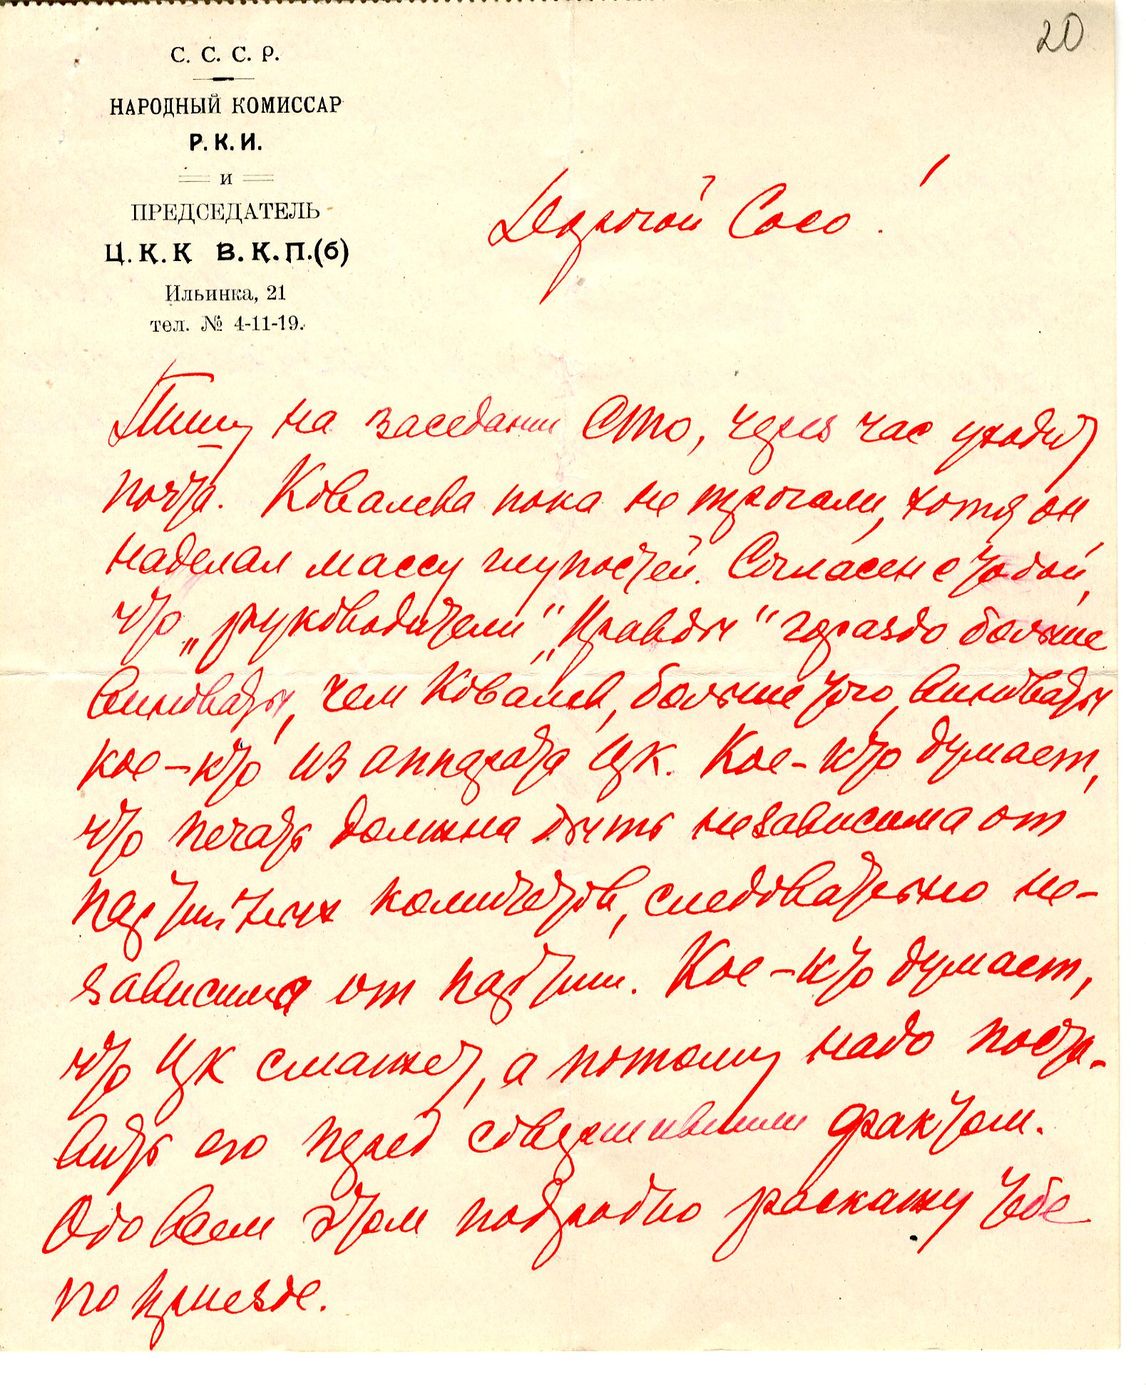 20
С. С. С. Р.
НАРОДНЫЙ КОМИССАР
Р. К. И.
и
ПРЕДСЕДАТЕЛЬ
Ц. К. К В. К. П. (б)
Ильинка, 21
тел. № 4-11-19.
Дорогой Сосо!
Пишу на заседании СТО, через час уходит
почта. Ковалева пока не трогали, хотя он
наделал массу глупостей. Согласен с тобой,
что „руководители" „Правды" гораздо больше
виноваты, чем Ковалев, больше того, виноваты
кое-кто из аппарата ЦК. Кое-кто думает,
что печать должна быть независима от
партийных комитетов, следовательно не-
зависима от партии. Кое-кто думает,
что ЦК смажет, а потому надо поста-
вить его перед совершившимся фактом.
Обо всем этом подробно раскажу тебе
по приезде.